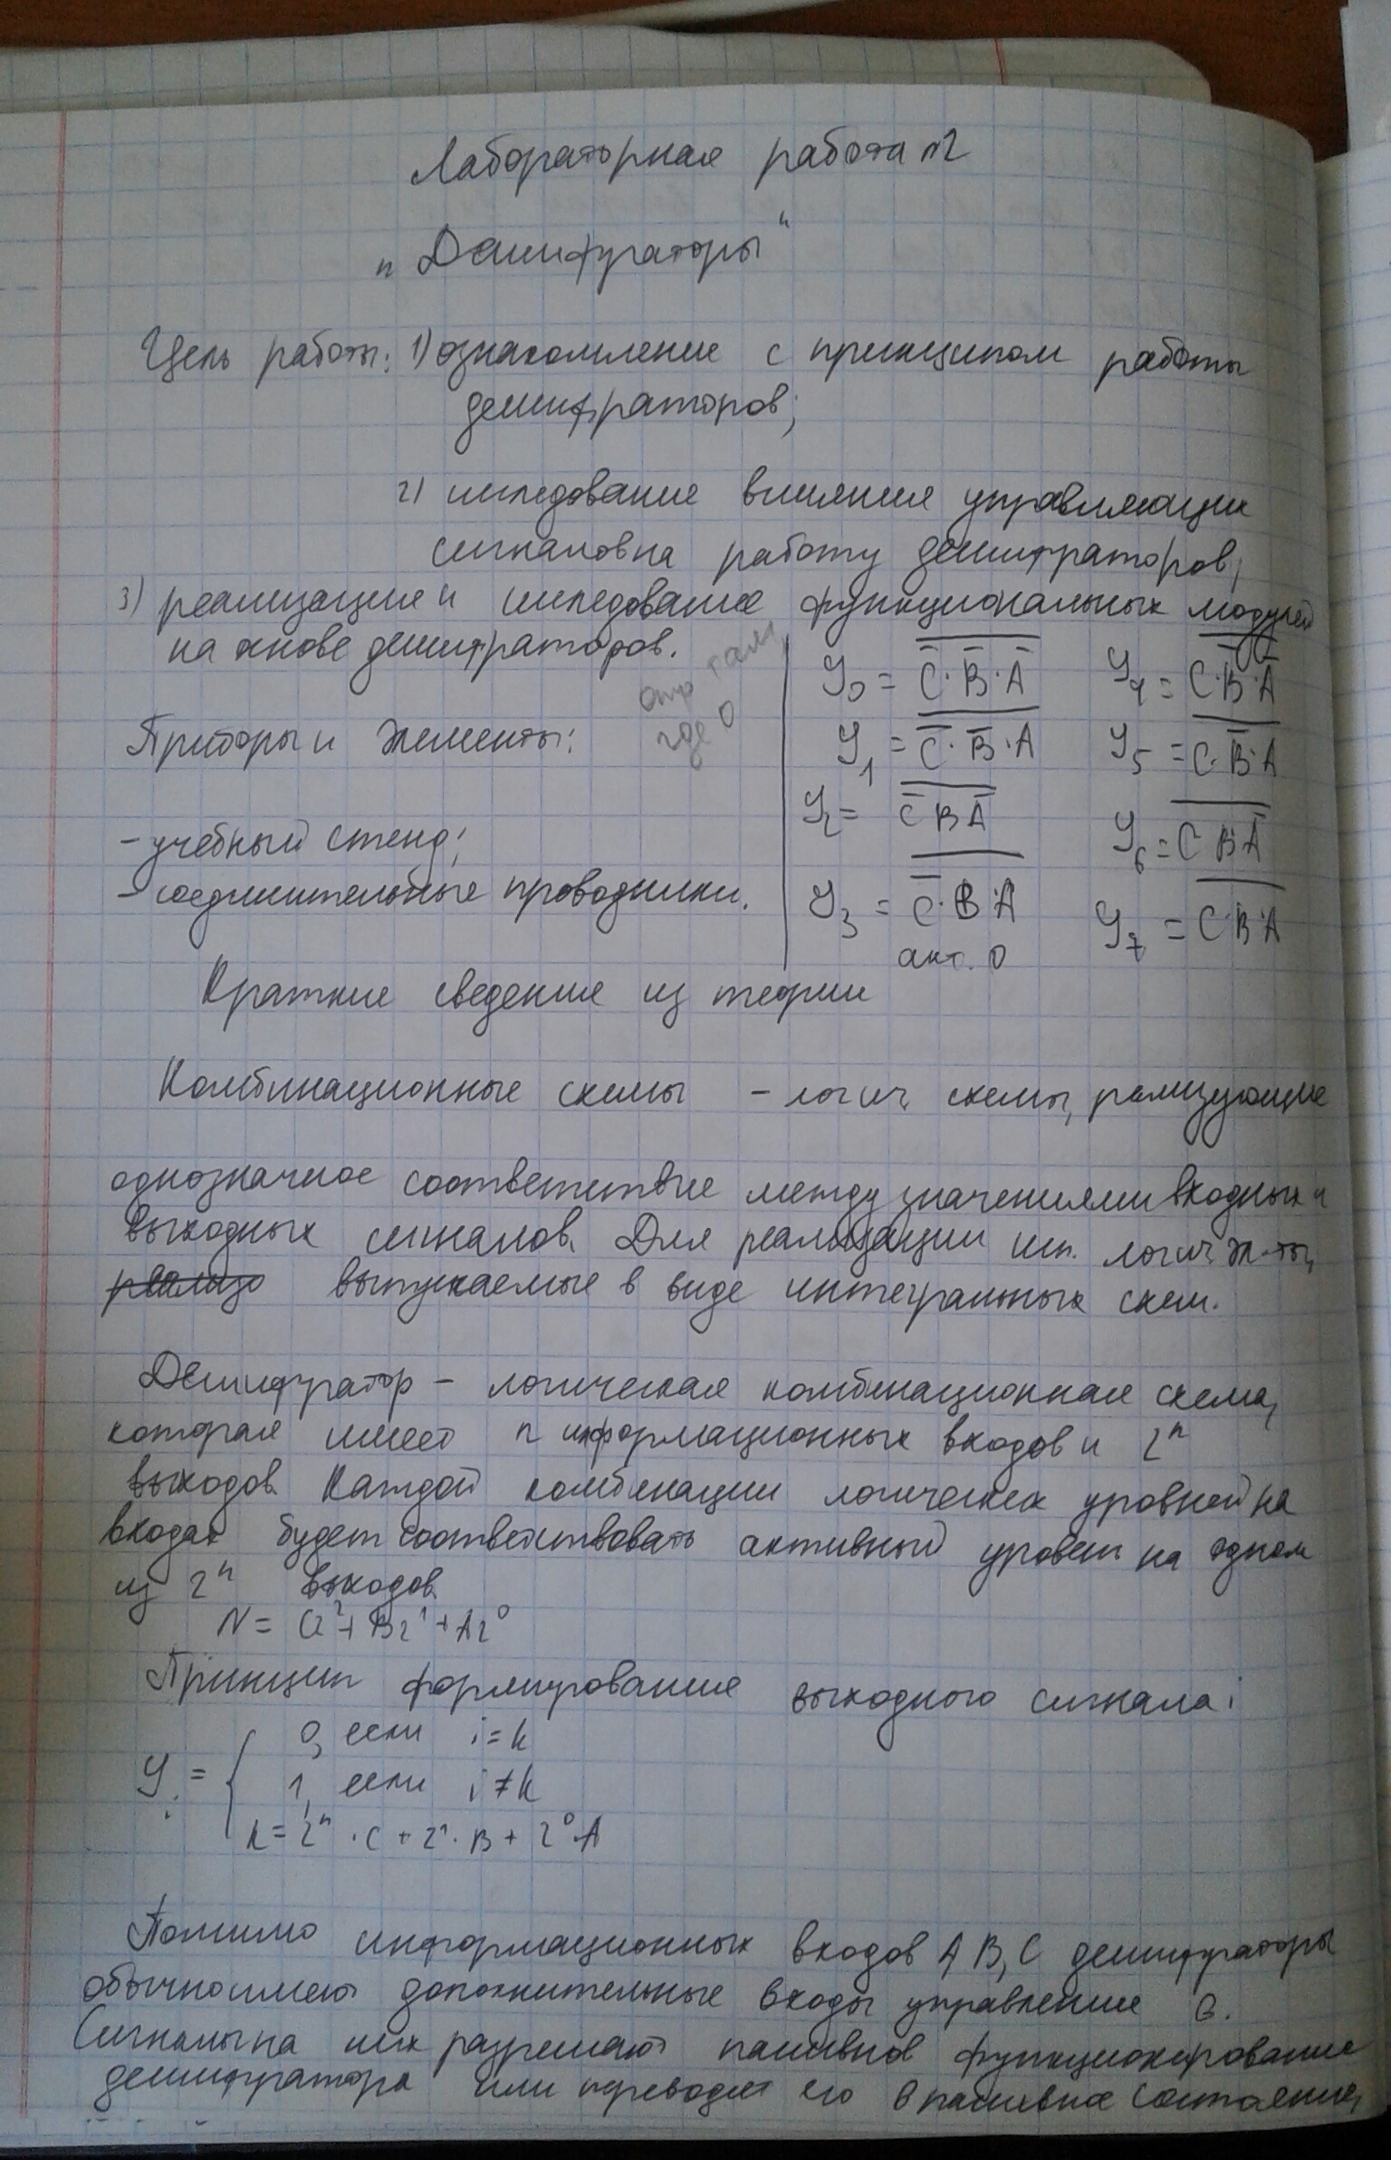 Лабораторная работа №2
„Дешифраторы"
Цель работы: 1) ознакомление с принципом работы
дешифраторов;
2) исследование влияния управляющих
сигналов на работу дешифраторов;
3) реализация и исследование функциональных модулей
на основе дешифраторов.
отр там,
где 0
Приборы и элементы:
- учебный стенд;
- соединительные проводники.
y₀ = \overline{\overline{C}·\overline{B}·\overline{A}}
y₁ = \overline{\overline{C}·\overline{B}·A}
y₂ = \overline{\overline{C}B\overline{A}}
y₃ = \overline{\overline{C}·B·A}
акт. 0
y₄ = \overline{C·\overline{B}·\overline{A}}
y₅ = \overline{C·\overline{B}·A}
y₆ = \overline{C B \overline{A}}
y₇ = \overline{C·B·A}
Краткие сведения из теории
Комбинационные схемы - логич. схемы, реализующие
однозначное соответствие между значениями входных и
выходных сигналов. Для реализации исп. логич. эл-ты,
выпускаемые в виде интегральных схем.
Дешифратор - логическая комбинационная схема,
которая имеет n информационных входов и 2ⁿ
выходов. Каждой комбинации логических уровней на
входах будет соответствовать активный уровень на одном
из 2ⁿ выходов.
N = C2²+B2¹+A2⁰
Принцип формирования выходного сигнала:
yᵢ = { 0, если i=k
1, если i≠k
k=2ⁿ·C+2¹·B+2⁰·A
Помимо информационных входов A, B, C дешифраторы
обычно имеют дополнительные входы управления G.
Сигналы на них разрешают функционирование
дешифратора или переводят его в пассивное состояние,